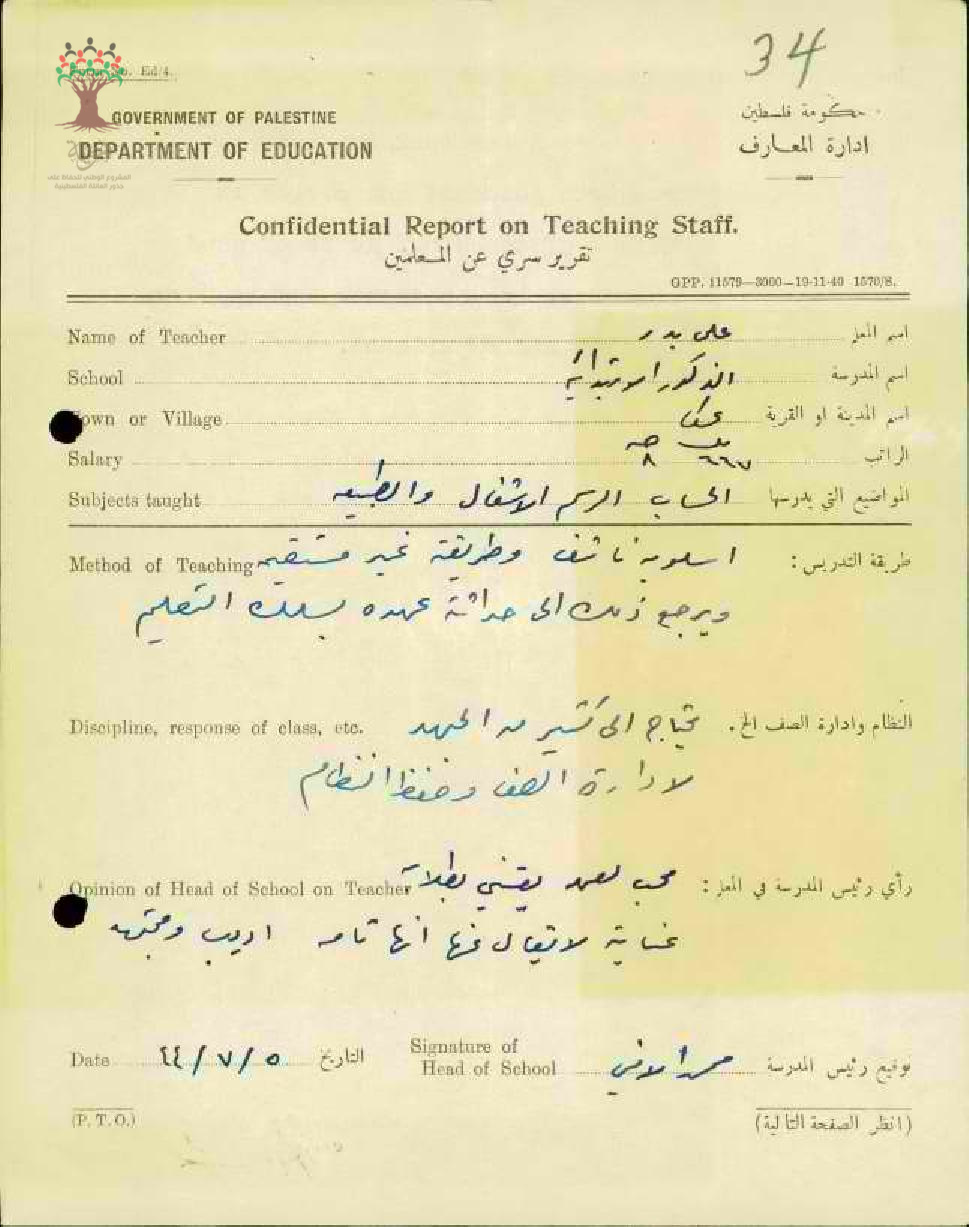 34
Ed/4.
GOVERNMENT OF PALESTINE
DEPARTMENT OF EDUCATION
حكومة فلسطين
ادارة المعارف
المشروع الوطني للحفاظ على
جذور العائلة الفلسطينية
Confidential Report on Teaching Staff.
تقرير سري عن المعلمين
GPP. 11579—3000—19-11-40 1570/S.
Name of Teacher علي بدر اسم المعلم
School الذكور الابتدائية اسم المدرسة
Town or Village عكا اسم المدينة او القرية
Salary ٦٦٧ ٨ الراتب
Subjects taught الحساب الرسم الاشغال والطبيعه المواضيع التي يدرسها
Method of Teaching اسلوبه ناشف وطريقته غير مستقيمه طريقة التدريس :
ويرجع ذلك الى حداثة عهده بسلك التعليم
Discipline, response of class, etc. يحتاج الى كثير من الجهد النظام وادارة الصف الخ .
لادارة الصف وحفظ النظام
Opinion of Head of School on Teacher محب لعمله يعتني بطلابه رأي رئيس المدرسة في المعلم :
عناية لا يقال عنها انها تامه اديب ومجتهد
Date ٤٤/٧/٥ التاريخ
Signature of
Head of School توقيع رئيس المدرسة
(P. T. O.) (انظر الصفحة التالية)